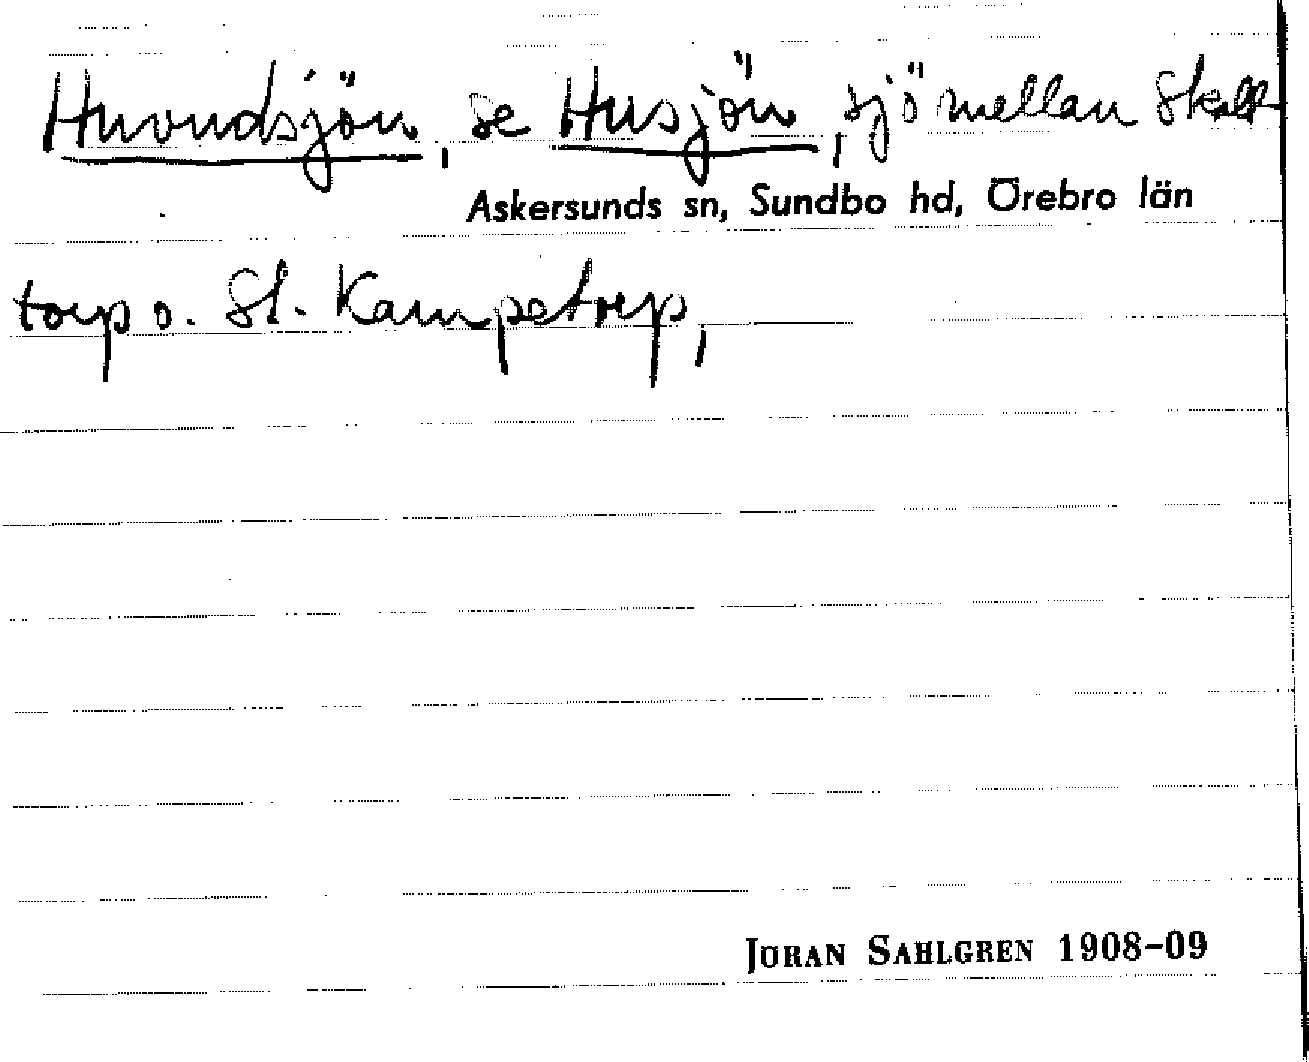 Huvudsjön, se Husjön, sjö mellan Skall-
Askersunds sn, Sundbo hd, Örebro län
torp o. St. Kampetorp,
JÖRAN SAHLGREN 1908–09